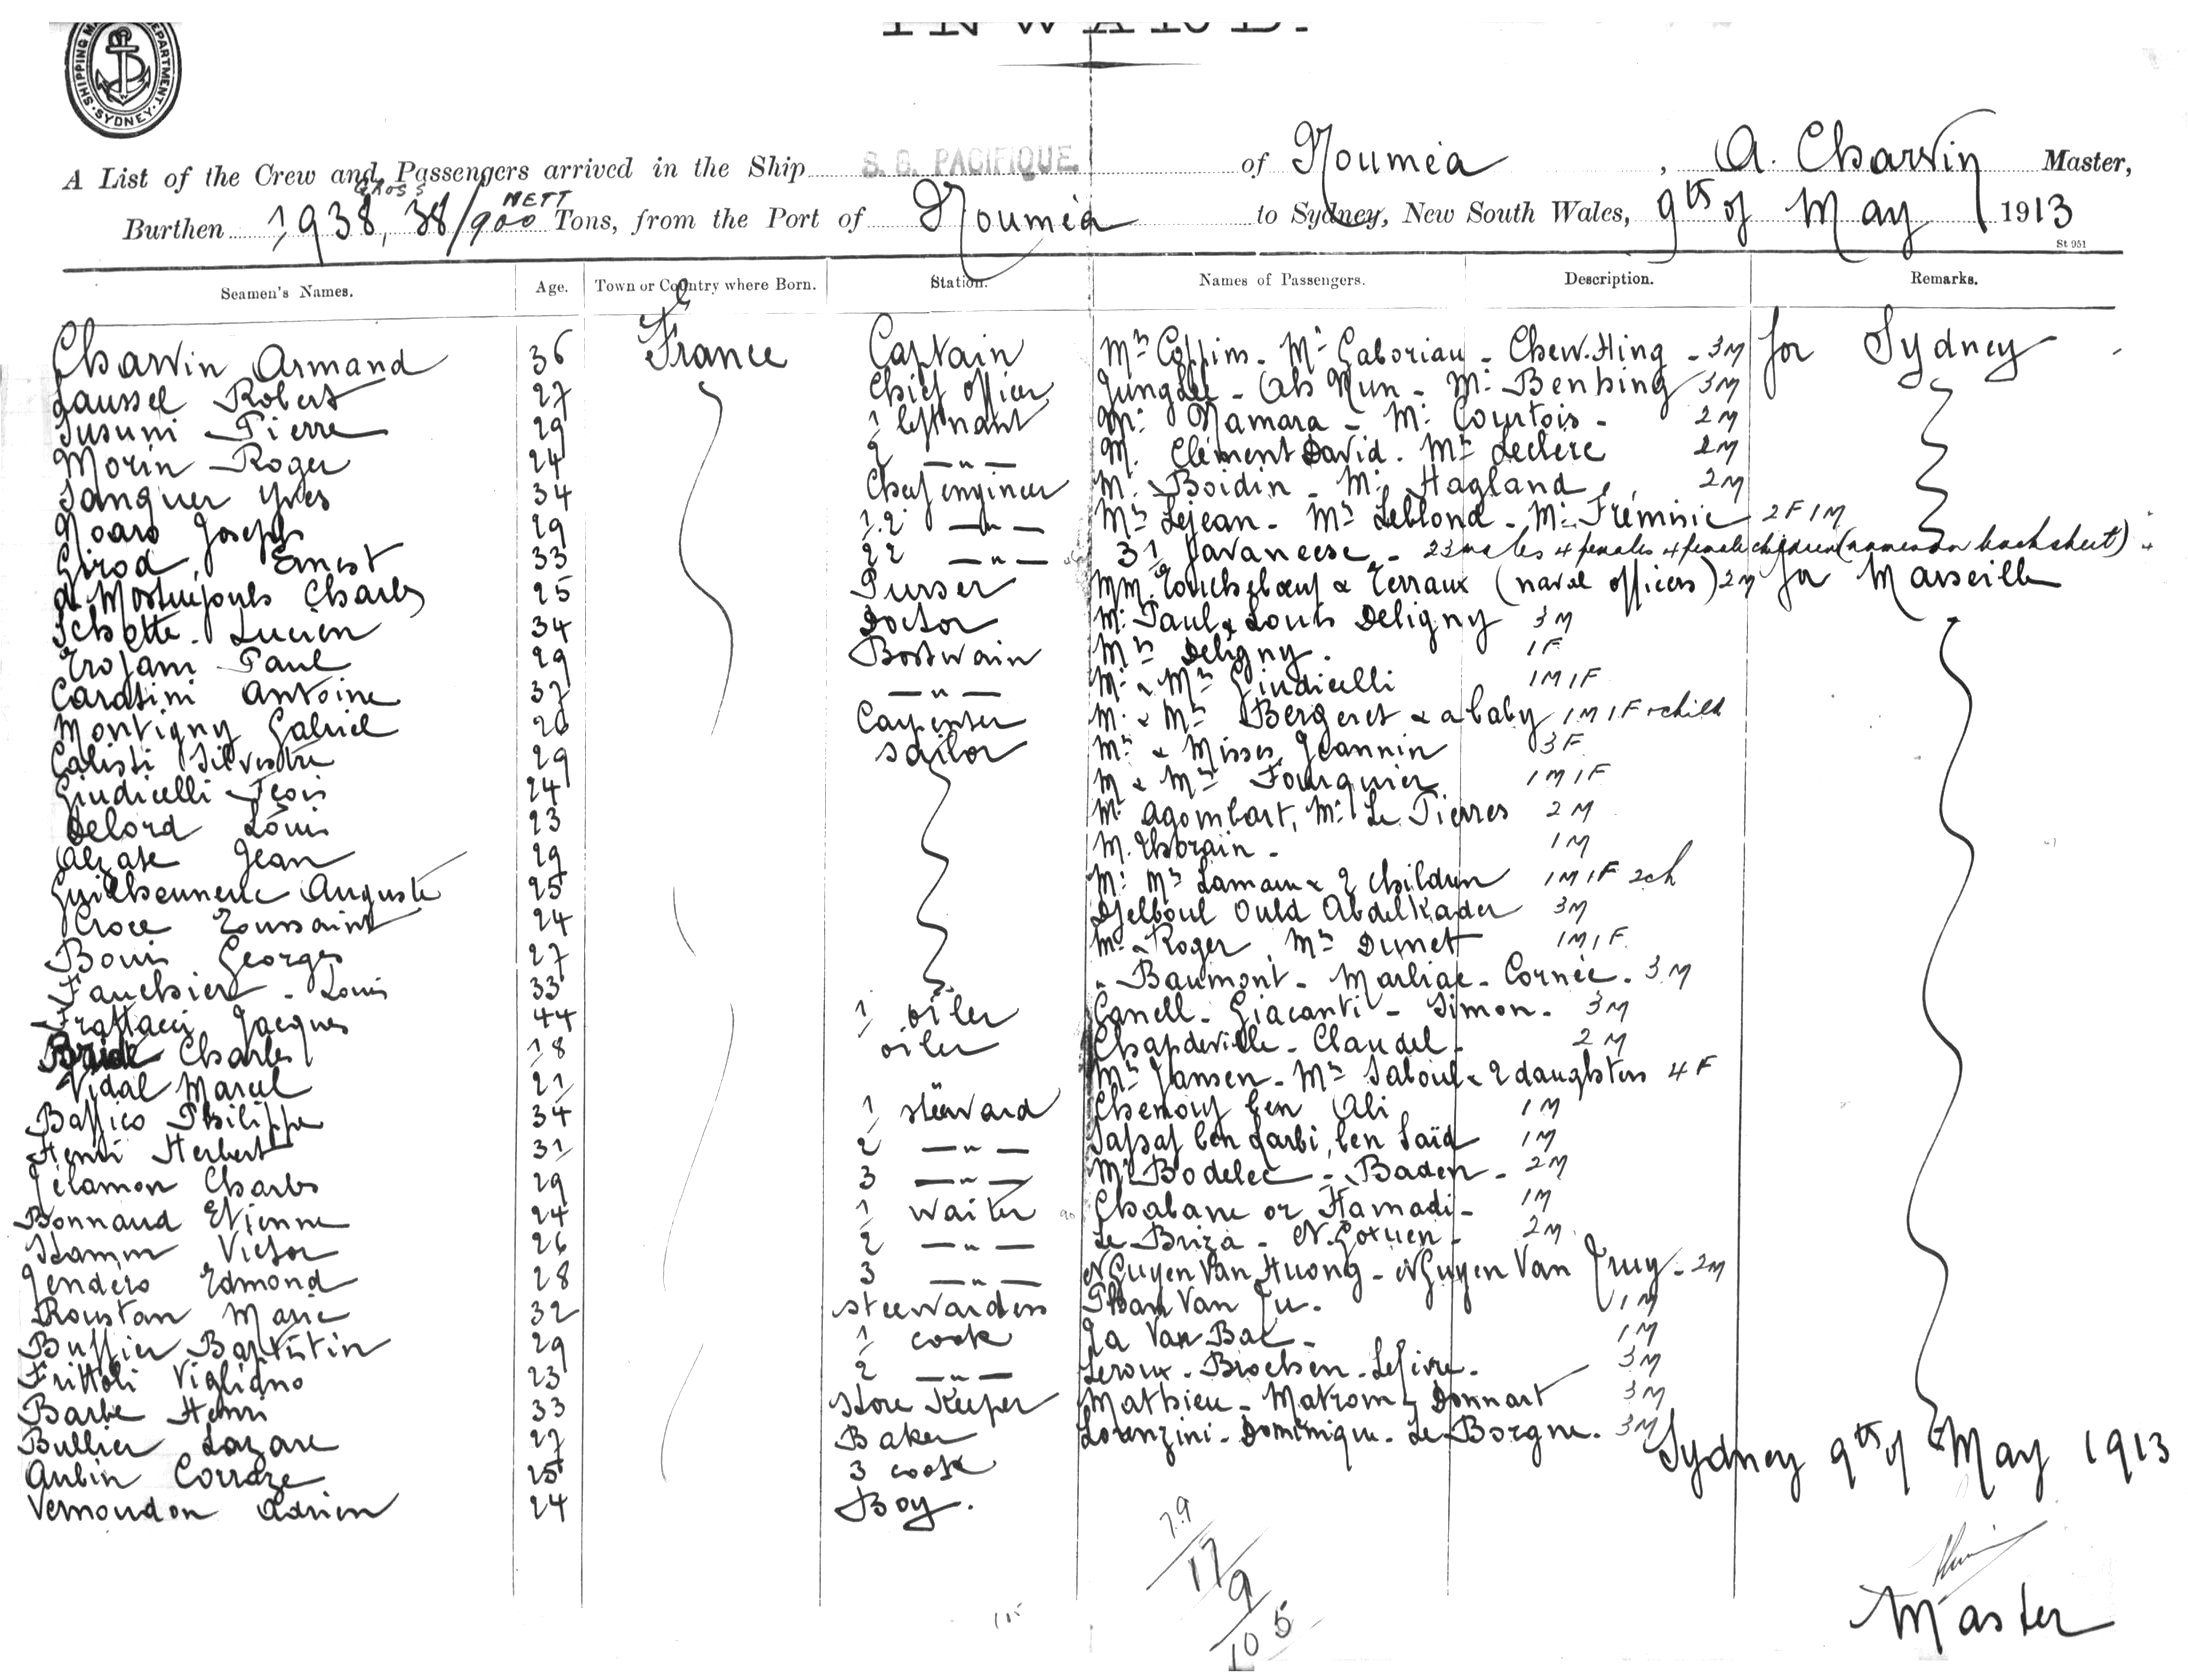 INWARD.
SHIPPING DEPARTMENT. SYDNEY
A List of the Crew and Passengers arrived in the Ship S.S. PACIFIQUE of Nouméa, A. Charvin Master,
GROSS NETT
Burthen 1938,38/900 Tons, from the Port of Nouméa to Sydney, New South Wales, 9th of May 1913
St 951
Seamen's Names. Age. Town or Country where Born. Station. Names of Passengers. Description. Remarks.
Charvin Armand 36 France Captain Mrs Collins - Mr Gaboriau - Chew.Hing - 3M for Sydney
Laussel Robert 27 Chief officer Junglee - Ah Nun - Mr Benhing 3M
Susuni Pierre 29 1 leftnant Mr Namara - Mr Courtois - 2M
Morin Roger 24 2 — " — M. Clément David. Mr Leclerc 2M
Tanguer Yves 34 Chief engineer M. Boidin - Mr Hagland 2M
Noaro Joseph 29 1.2 — " — Mrs Lejean - Mrs Leblond - Mr Frémisie 2F 1M
Girod Ernest 33 22 — " — 31 Javaneese - 23 males 4 females 4 female children (names on back sheet)
de Mostuejouls Charles 25 Purser MM. Touchebœuf & Terraux (naval officers) 2M for Marseille
Schotte Lucien 34 Doctor Mr Paul & Louis Deligny 3M
Trojani Paul 29 Bostwain Mrs Deligny. 1F
Caratini Antoine 37 — " — Mr & Mrs Giudicelli 1M 1F
Montigny Gabriel 26 Carpenter M. & Mrs Bergeret & a baby 1M 1F + child
Calisti Silvestre 29 sailor Mrs & Misses Jeannin 3F
Giudicelli 24 M & Mrs Fourquier 1M 1F
Delord Louis 23 Mr Agombart, Mr Le Pierres 2M
Alzate Jean 29 M. Thorain - 1M
Guilhenneuc Auguste 25 Mr Mrs Lamaux & 2 children 1M 1F 2ch
Croce Toussaint 24 Djelboul Ould Abdelkader 3M
Bouis Georges 27 Mr Roger, Mrs Dumet 1M 1F
Fauchier - Louis 33 Baumont - Marliac - Cornée. 3M
Frattacci Jacques 44 1 oiler Canell - Giacanti - Simon. 3M
Charles 18 oiler Chapdeville - Claudel - 2M
Vidal Marcel 21 Mrs Jansen - Mrs Saboul & 2 daughters 4F
Baffico Philippe 34 1 steward ben Ali 1M
Henri Herbert 31 2 — " — Safsaf ben Larbi, ben Saïd 1M
Jélamon Charles 29 3 — " — Mr Bodelec - Baden - 2M
Bonnaud Etienne 24 1 Waiter Chabane or Hamadi - 1M
Stamm Victor 26 2 — " — Le Briza - N.Gotuen - 2M
Jendero Edmond 28 3 — " — NGuyen Van Huong - NGuyen Van Truy - 2M
Roustan Marie 32 steewardess Pham Van Tu. 1M
Buffier Baptistin 29 1 cook Ta Van Bac - 1M
Frittoli Vigliano 23 2 — " — Leroux - Brochen - Lefivre. 3M
Barbe Henri 33 Store Keeper Mathieu - Matrom - Donnart 3M
Bullier Lazare 27 Baker Lorenzini - Dominique - Le Borgne. 3M
Aubin Corraze 25 3 cook Sydney 9th of May 1913
Vernoudon Adrien 24 Boy.
79
17
9
105
Master